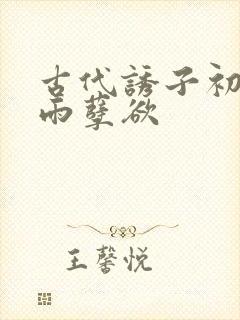 古代誘子初
雨孽欲
王馨悦